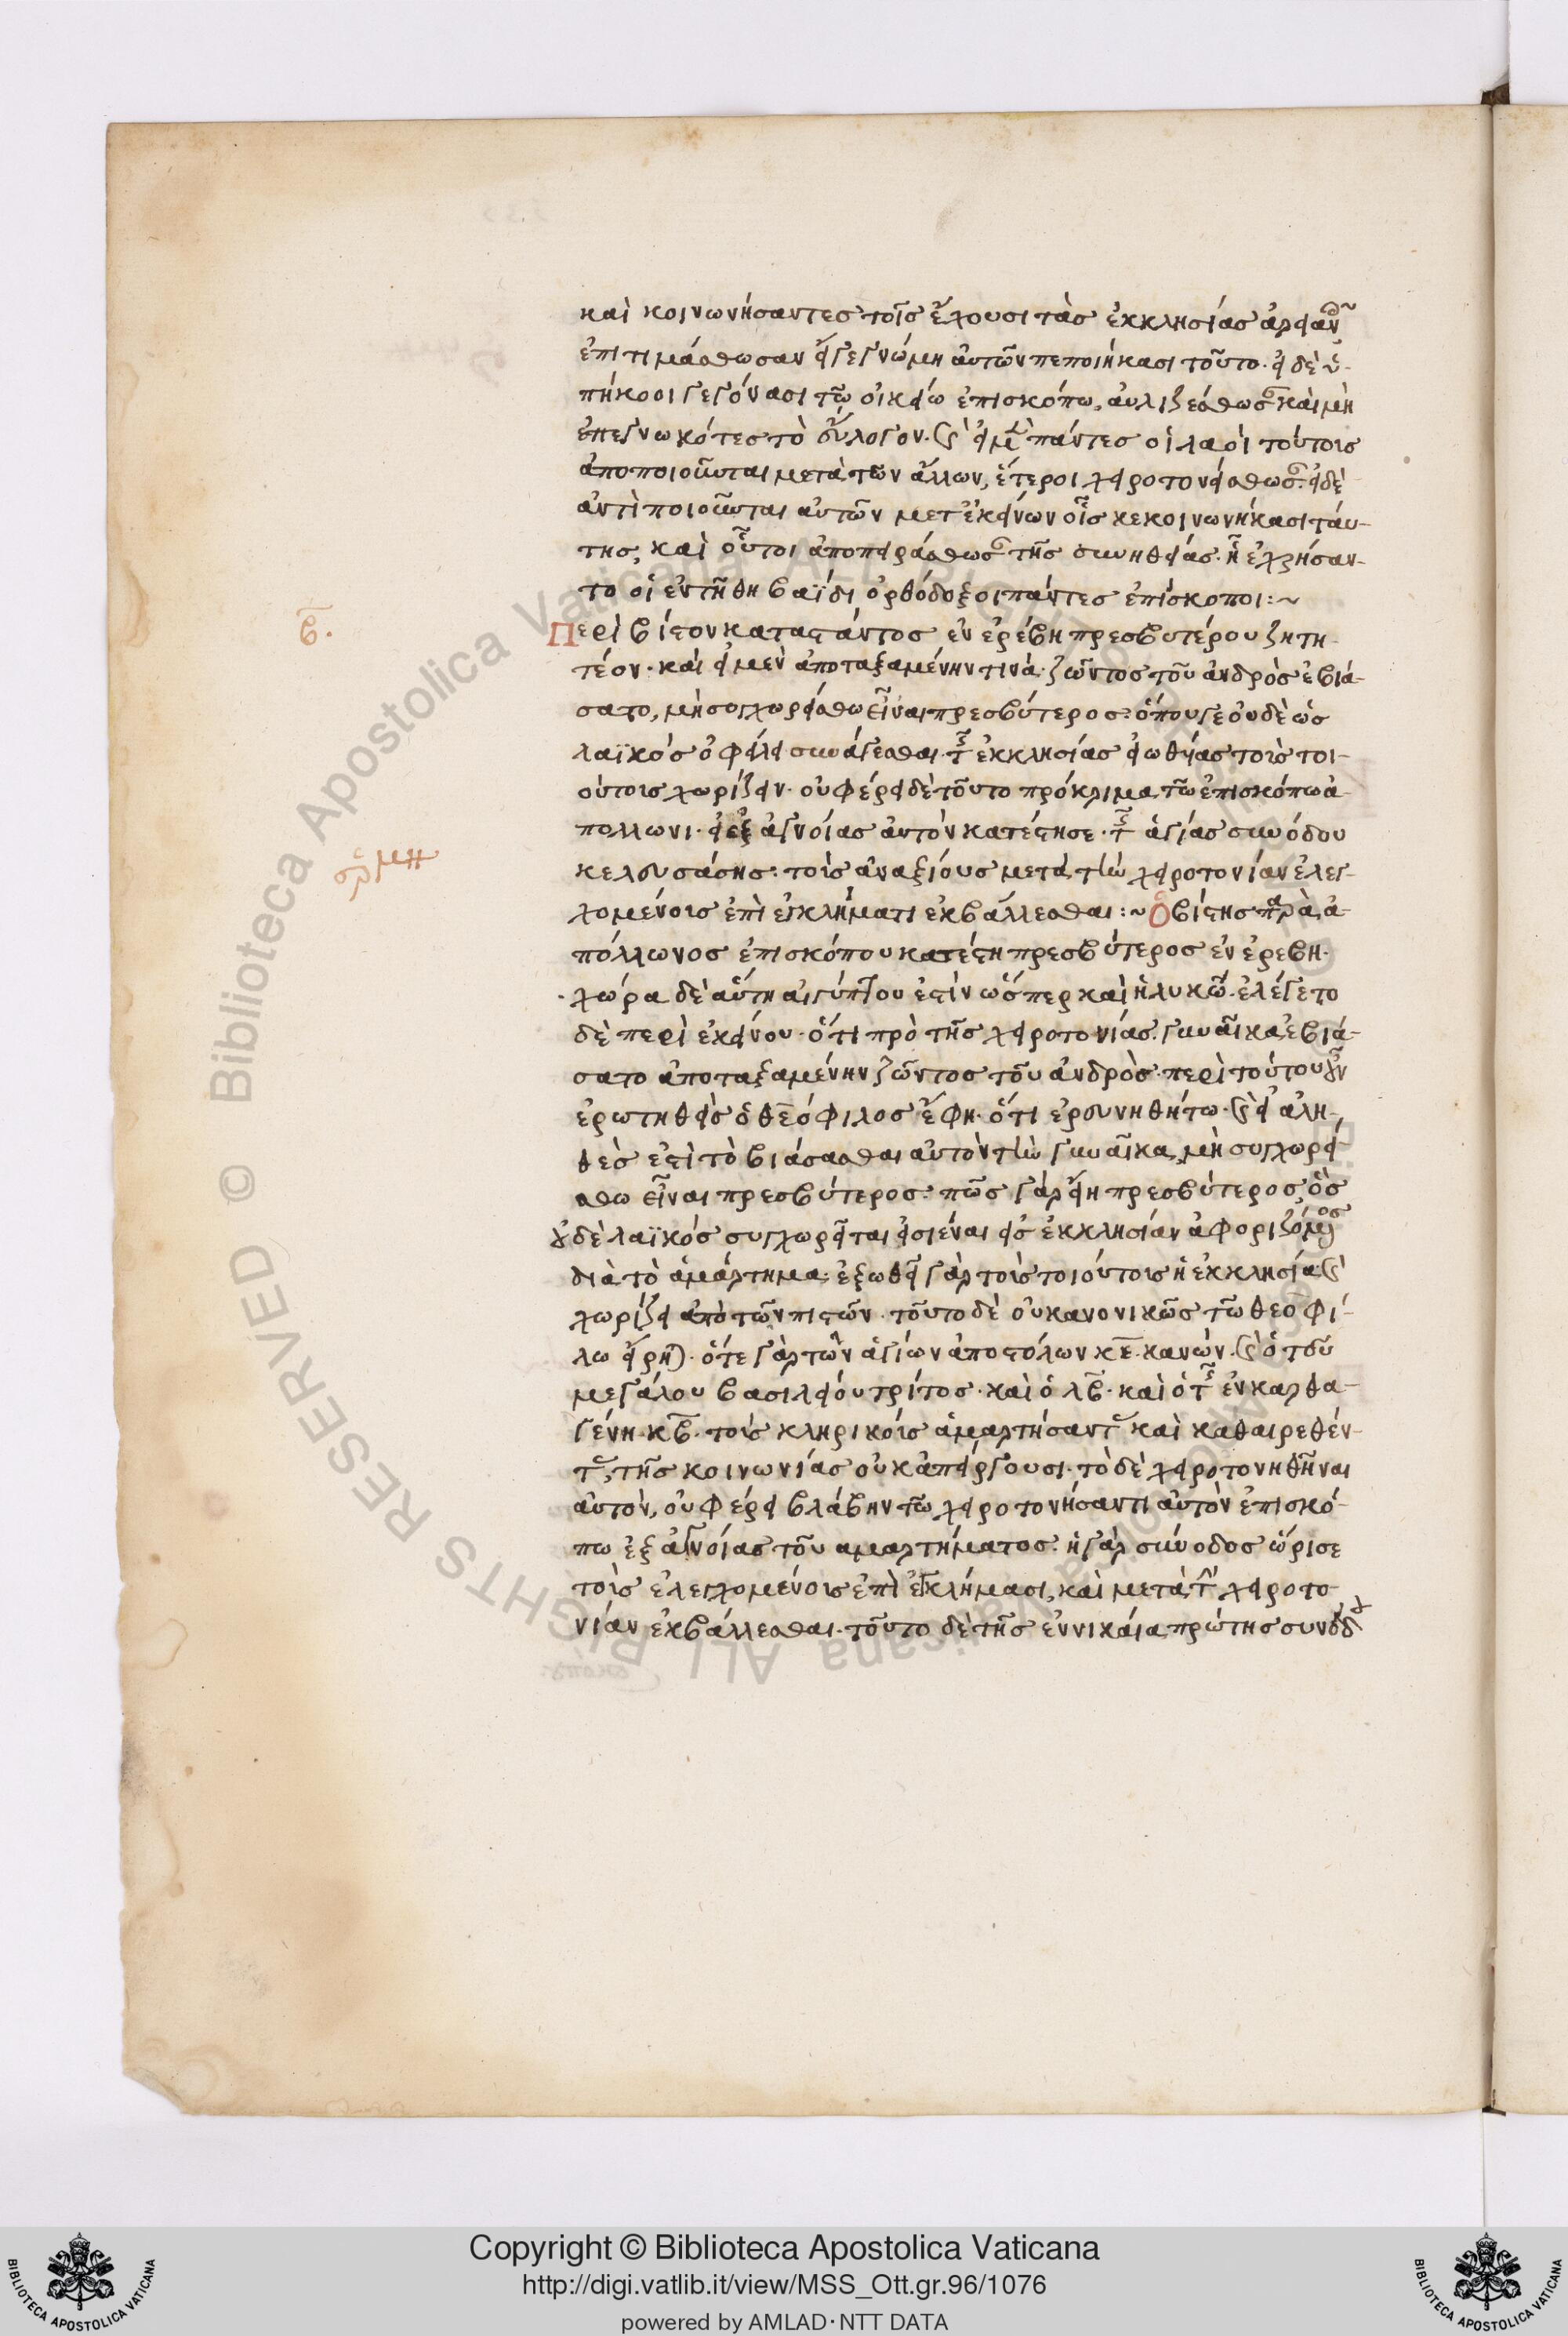 καὶ κοινωνήσαντες τοῖς ἔχουσι τὰς ἐκκλησίας ἀρειανῶν
ἐπιτιμάσθωσαν εἴγε γνώμη αὐτῶν πεποιήκασι τοῦτο· εἰ δὲ ὑ-
πήκοοι γεγόνασι τῷ οἰκείω ἐπισκόπω, αὐλιζέσθωσαν καὶ μὴ
ἐπεγνωκότες τὸ εὔλογον. καὶ εἰ μὲν πάντες οἱ λαοὶ τούτους
ἀποποιοῦνται μετὰ τῶν ἄλλων, ἕτεροι χειροτονείσθωσαν· εἰ δὲ
ἀντιποιοῦνται αὐτῶν μετ ἐκείνων οἷς κεκοινωνήκασι ταύ-
της, καὶ οὗτοι ἀποπειράσθωσαν τῆς συνηθείας. ἧ ἐχρήσαν-
το οἱ ἐν τῆ θηβαΐδι ὀρθόδοξοι πάντες ἐπίσκοποι:~
β.
Περὶ βίστον καταστάντος ἐν ἐρέβη πρεσβυτέρου ζητη-
τέον· καὶ εἰ μὲν ἀποταξαμένην τινὰ ζῶντος τοῦ ἀνδρὸς ἐβιά-
σατο, μὴ συγχωρείσθω εἶναι πρεσβύτερος· ὁπουγε οὐδὲ ὡς
λαϊκὸς ὀφείλει συνάγεσθαι τῆς ἐκκλησίας εἰωθυίας τοὺς τοι-
ούτους χωρίζειν· οὐ φέρει δὲ τοῦτο πρόκλιμα τῷ ἐπισκόπω ἀ-
πόλλωνι· εἰ ἐξ ἀγνοίας αὐτὸν κατέστησε· τῆς ἁγίας συνόδου
κελευσάσης· τοὺς ἀναξίους μετὰ τὴν χειροτονίαν ἐλεγ-
χομένους ἐπὶ ἐγκλήματι ἐκβάλλεσθαι:~ Ὁ βίστης παρὰ ἀ-
πόλλωνος ἐπισκόπου κατέστη πρεσβύτερος ἐν ἐρεβη·
χώρα δὲ αὕτη αἰγύπτου ἐστὶν ὥσπερ καὶ ἡ λυκῶ. ἐλέγετο
δὲ περὶ ἐκείνου· ὅτι πρὸ τῆς χειροτονίας γυναῖκα ἐβιά-
σατο ἀποταξαμένην ζῶντος τοῦ ἀνδρὸς· περὶ τούτου οὖν
ἐρωτηθεὶς ὁ θεόφιλος ἔφη· ὅτι ἐρευνηθήτω. καὶ εἰ ἀλη-
θές ἐστὶ τὸ βιάσασθαι αὐτὸν τὴν γυναῖκα, μὴ συγχωρεί-
σθω εἶναι πρεσβύτερος· πῶς γὰρ εἴη πρεσβύτερος, ὃς
οὐδὲ λαϊκός συγχωρεῖται εἰσιέναι εἰς ἐκκλησίαν ἀφοριζόμενος
διὰ τὸ ἁμάρτημα· ἐξωθεῖ γὰρ τοὺς τοιούτους ἡ ἐκκλησία καὶ
χωρίζει ἀπὸ τῶν πιστῶν. τοῦτο δὲ οὐ κανονικῶς τῷ θεοφί-
λω εἴρηται· ὅτε γὰρ τῶν ἁγίων ἀποστόλων κε κανών. καὶ ὁ τοῦ
μεγάλου βασιλείου τρίτος· καὶ ὁ λβ· καὶ ὁ τῆς ἐν καρθα-
γένη κβ. τοὺς κληρικοὺς ἁμαρτήσαντας καὶ καθαιρεθέν-
τας, τῆς κοινωνίας οὐκ ἀπείργουσι· τὸ δὲ χειροτονηθῆναι
αὐτὸν, οὐ φέρει βλάβην τῷ χειροτονήσαντι αὐτὸν ἐπισκό-
πω ἐξ ἀγνοίας τοῦ αμαρτήματος· ἡ γὰρ σύνοδος ὥρισε
τοὺς ἐλεγχομένους ἐπὶ ἐγκλήμασι, καὶ μετὰ τὴν χειροτο-
νίαν ἐκβάλλεσθαι. τοῦτο δὲ τῆς ἐν νικαία πρώτης συνόδου
Copyright © Biblioteca Apostolica Vaticana
http://digi.vatlib.it/view/MSS_Ott.gr.96/1076
powered by AMLAD·NTT DATA
BIBLIOTECA APOSTOLICA VATICANA
BIBLIOTECA APOSTOLICA VATICANA